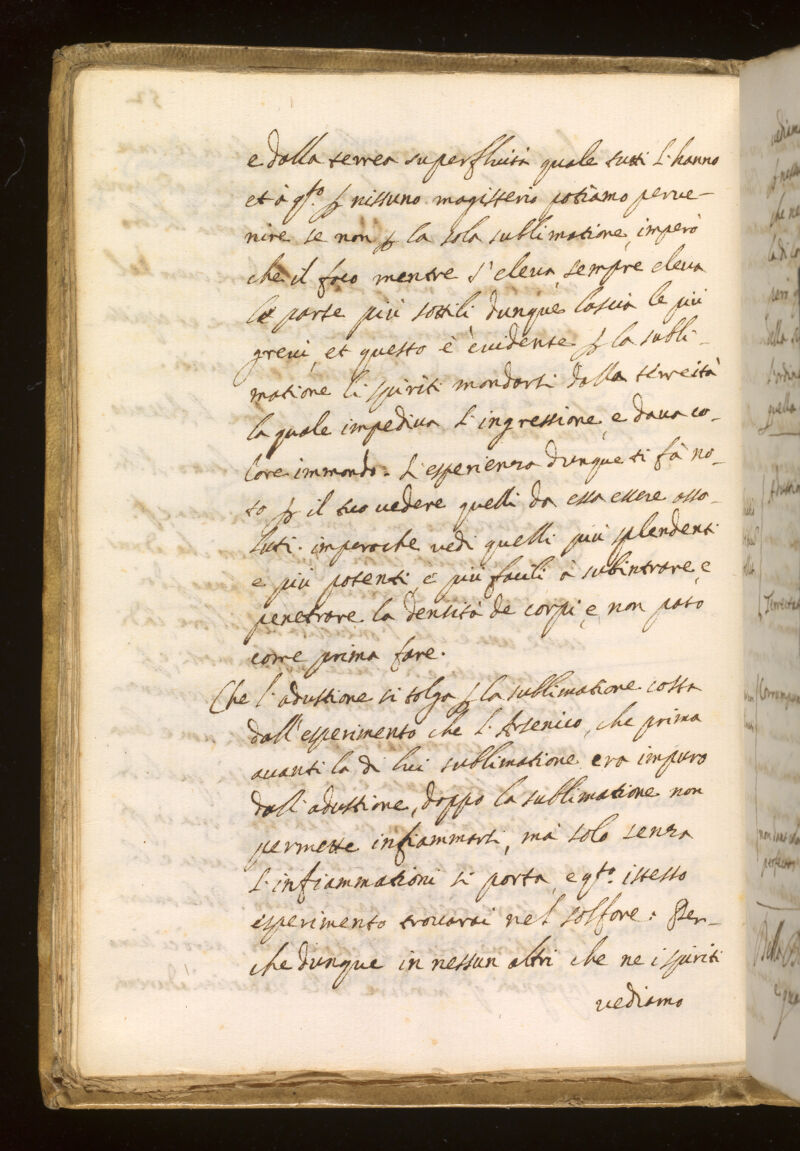 e dalla terrea superfluità quale tutti l'hanno
et à q.to p nissuno magisterio potiamo perve-
nire se non p la sola sublimatione, imperò
che il foco mentre s'eleva sempre eleva
le parte più sottili dunque lascia le più
grevi, et questo è evidente p la subli-
matione li spiriti mondarsi dalla terreità
la quale impediva l'ingressione, e dava co-
lore immondo. L'esperienza dunque ti fà no-
to p il tuo vedere quelli da essa essere asso-
luti. imperoche vedi quelli più splendenti
e più potenti, e più facili à subintrare, e
penetrare la densità de corpi, e non però
come prima fare.
Che l'adustione si tolga p la sublimatione costa
dall'esperimento che l'Arsenico, che prima
avanti la di lui sublimatione era impuro
dall'adustione, doppo la sublimatione non
permette infiammarsi, mà solo senza
l'infiammationi si porta, e q.to istesso
esperimento trovarai nel solfore: Per-
che dunque in nessun altri che ne i spiriti
vediamo